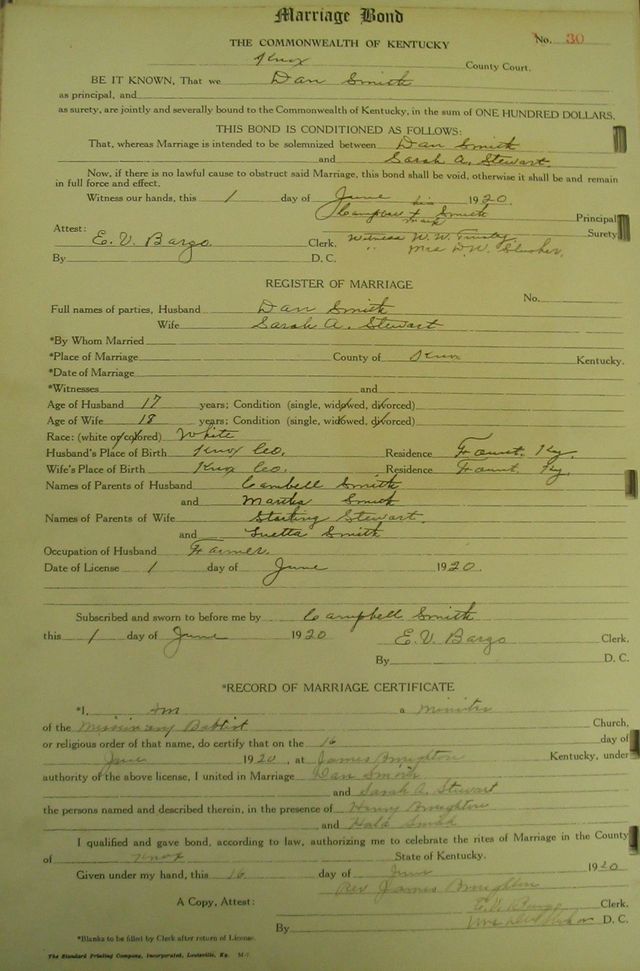 Marriage Bond
No. 30
THE COMMONWEALTH OF KENTUCKY
Knox County Court.
BE IT KNOWN, That we Dan Smith
as principal, and
as surety, are jointly and severally bound to the Commonwealth of Kentucky, in the sum of ONE HUNDRED DOLLARS.
THIS BOND IS CONDITIONED AS FOLLOWS:
That, whereas Marriage is intended to be solemnized between Dan Smith
and Sarah A. Stewart.
Now, if there is no lawful cause to obstruct said Marriage, this bond shall be void, otherwise it shall be and remain
in full force and effect.
Witness our hands, this 1 day of June 1920.
his
Campbell X Smith Principal
mark
Attest: Surety
E. V. Bargo Clerk. Witness W. W.
By D. C. " Mrs D. W. Slusher,
REGISTER OF MARRIAGE
No.
Full names of parties, Husband Dan Smith
Wife Sarah A. Stewart
*By Whom Married
*Place of Marriage County of Knox Kentucky.
*Date of Marriage
*Witnesses and
Age of Husband 17 years; Condition (single, widowed, divorced)
Age of Wife 18 years; Condition (single, widowed, divorced)
Race: (white or colored) White
Husband's Place of Birth Knox Co. Residence Fount. Ky.
Wife's Place of Birth Knox Co. Residence Fount. Ky.
Names of Parents of Husband Cambell Smith
and Martha Smith
Names of Parents of Wife Starling Stewart.
and Luetta Smith
Occupation of Husband Farmer.
Date of License 1 day of June 1920.
Subscribed and sworn to before me by Campbell Smith
this 1 day of June 1920 E. V. Bargo Clerk.
By D. C.
*RECORD OF MARRIAGE CERTIFICATE
*I, am a Minister
of the Missionary Baptist Church,
or religious order of that name, do certify that on the 16 day of
June 1920, at James Broughton Kentucky, under
authority of the above license, I united in Marriage Dan Smith
and Sarah A. Stewart
the persons named and described therein, in the presence of Henry Broughton
and Smith
I qualified and gave bond, according to law, authorizing me to celebrate the rites of Marriage in the County
of Knox State of Kentucky.
Given under my hand, this 16 day of June 1920
Rev James Broughton
A Copy, Attest: E. V. Bargo Clerk.
By Mrs D. C.
*Blanks to be filled by Clerk after return of License.
The Standard Printing Company, Incorporated, Louisville, Ky.